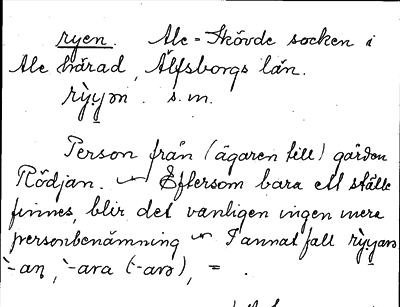 ryen. Ale-Skövde socken i
Ale härad, Älfsborgs län.
rỳy̤ən. s.m.
Person från (ägaren till) gården
Rödjan. ~ Eftersom bara ett ställe
finnes, blir det vanligen ingen mera
personbenämning ~ I annat fall rỳy̤anə
`-aṇ, `-ara (`-arə), = .